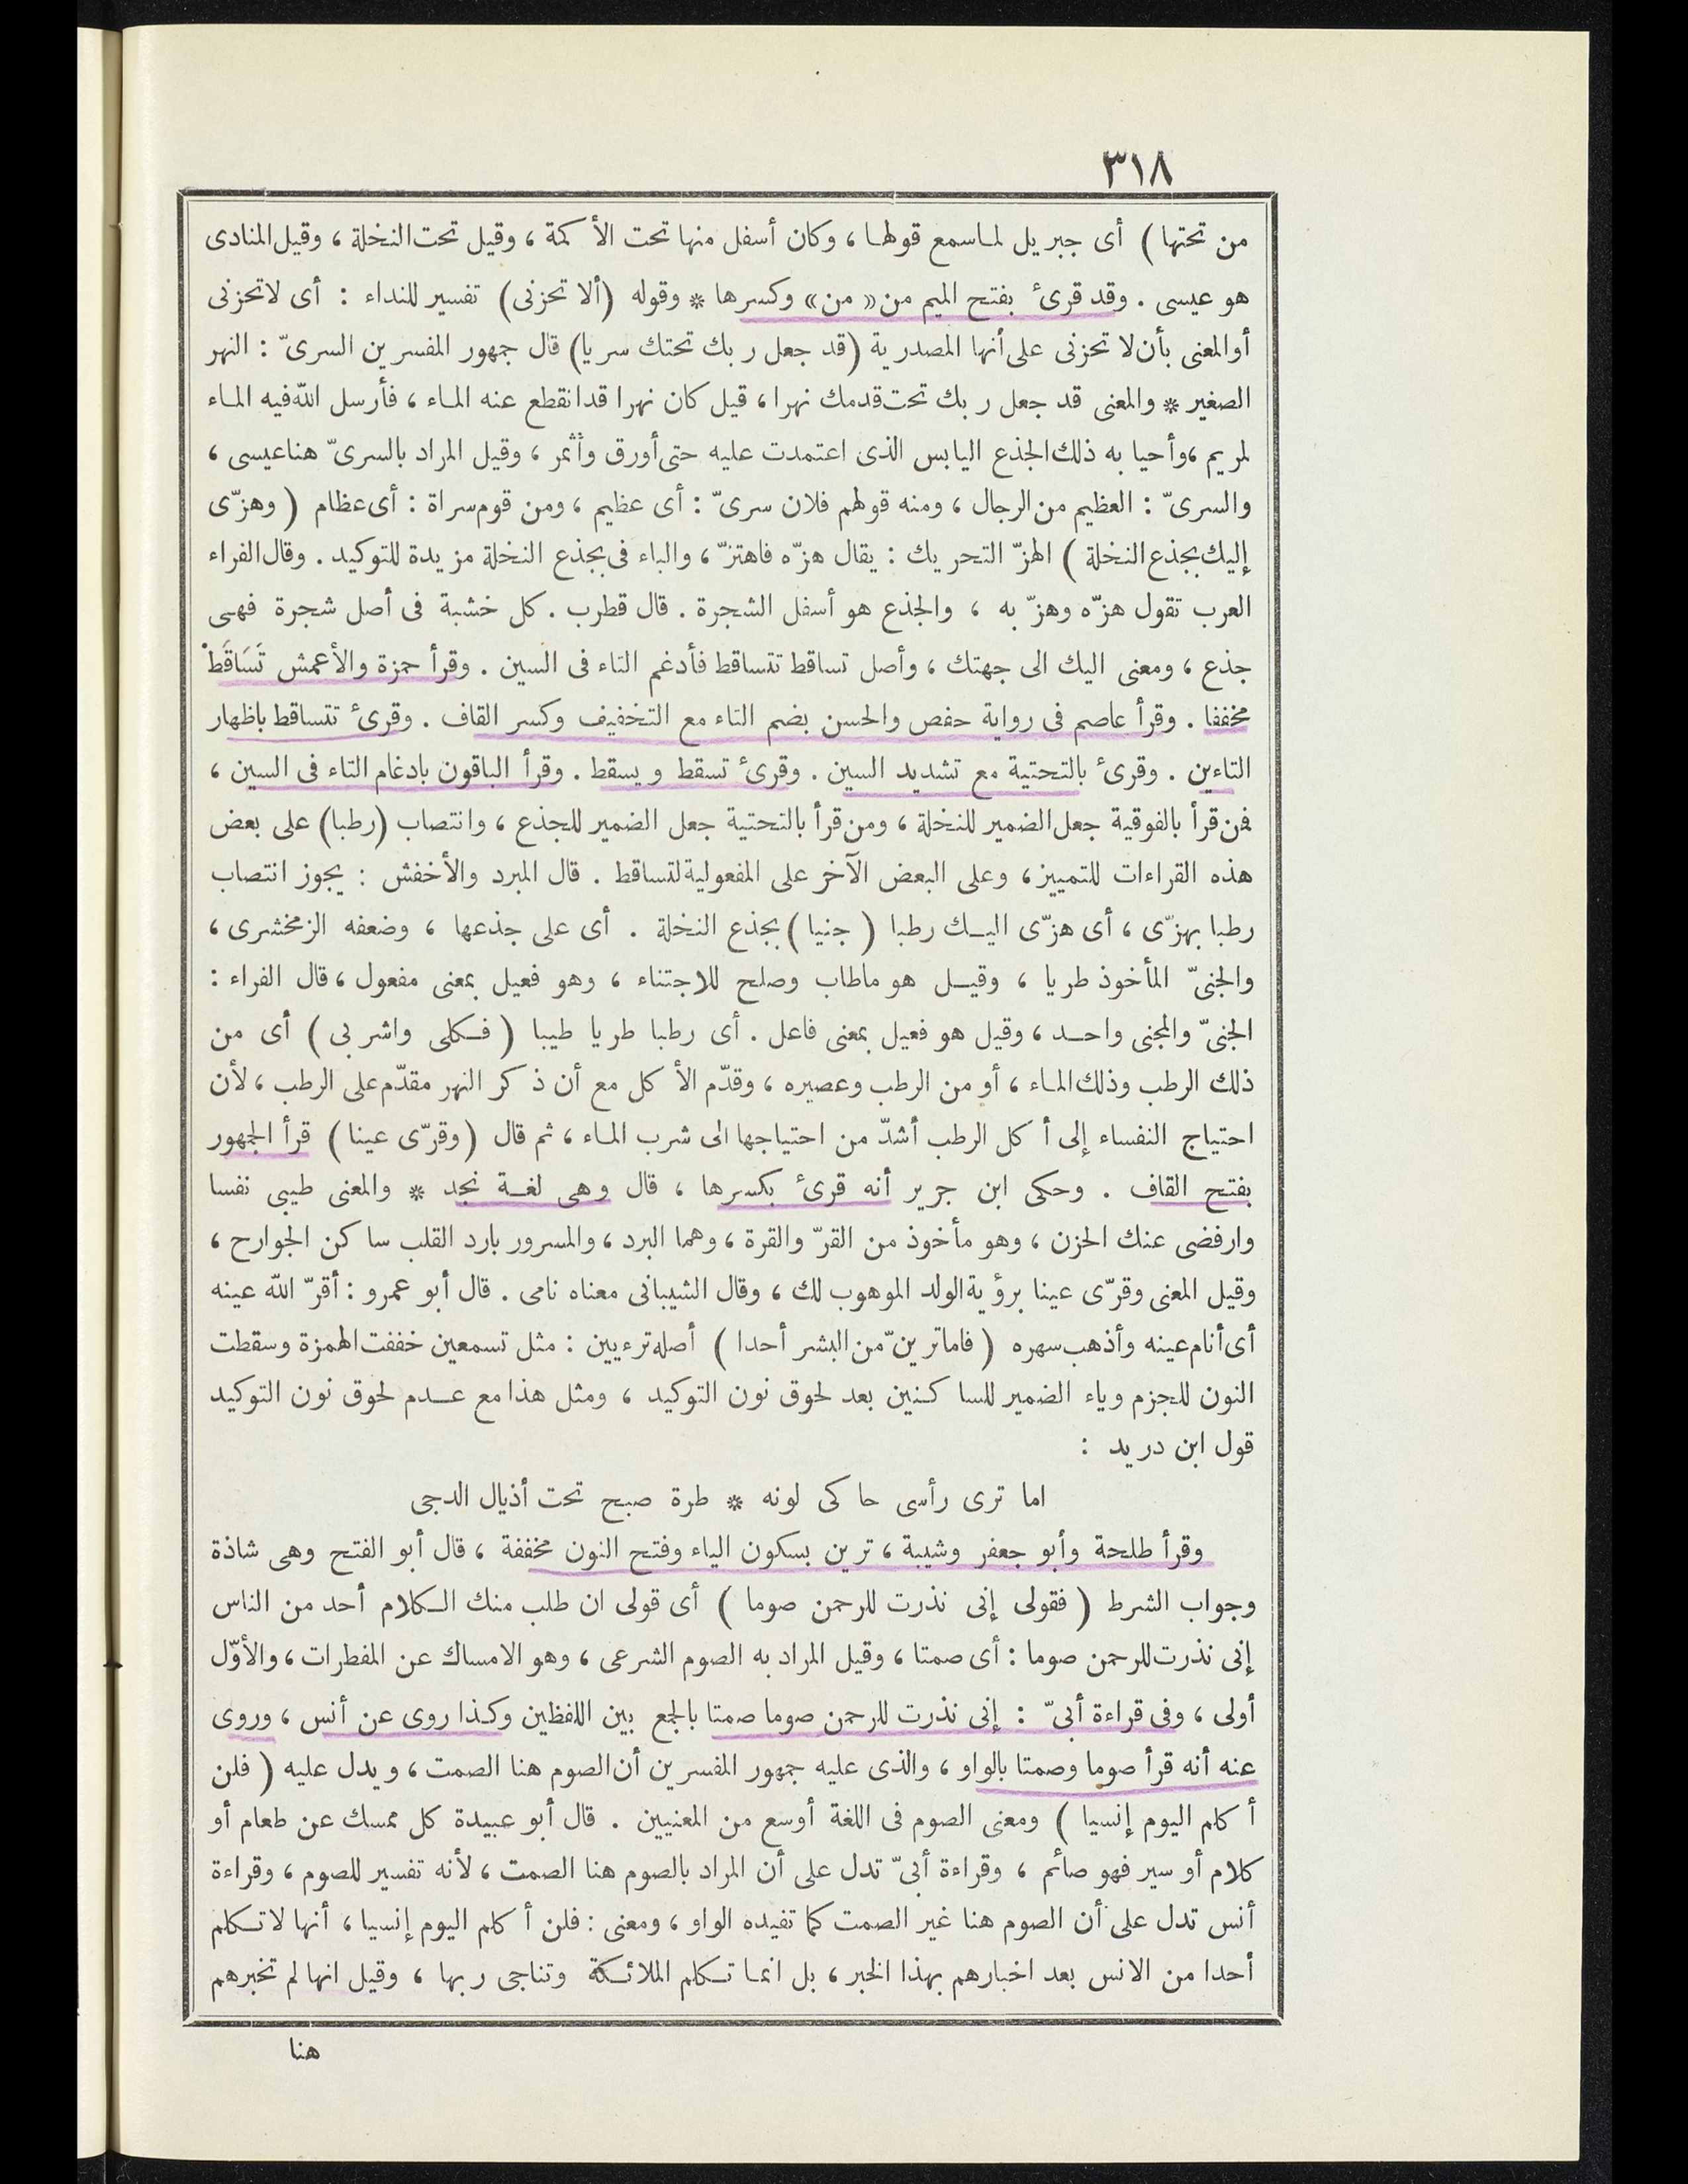 ٣١٨
من تحتها ) أى جبريل لما سمع قولها ، وكان أسفل منها تحت الأكمة ، وقيل تحت النخلة ، وقيل المنادى
هو عيسى . وقد قرئ بفتح الميم من « من » وكسرها * وقوله (ألا تحزنى) تفسير للنداء : أى لاتحزنى
أوالمعنى بأن لا تحزنى على أنها المصدرية (قد جعل ربك تحتك سريا) قال جمهور المفسرين السرىّ : النهر
الصغير * والمعنى قد جعل ربك تحت قدمك نهرا ، قيل كان نهرا قد انقطع عنه الماء ، فأرسل الله فيه الماء
لمريم ، وأحيا به ذلك الجذع اليابس الذى اعتمدت عليه حتى أورق وأثمر ، وقيل المراد بالسرىّ هنا عيسى ،
والسرىّ : العظيم من الرجال ، ومنه قولهم فلان سرىّ : أى عظيم ، ومن قوم سراة : أى عظام ( وهزّى
إليك بجذع النخلة ) الهزّ التحريك : يقال هزّه فاهتزّ ، والباء فى بجذع النخلة مزيدة للتوكيد . وقال الفراء
العرب تقول هزّه وهزّ به ، والجذع هو أسفل الشجرة . قال قطرب . كل خشبة فى أصل شجرة فهى
جذع ، ومعنى اليك الى جهتك ، وأصل تساقط تتساقط فأدغم التاء فى السين . وقرأ حمزة والأعمش تَسَاقَطْ
مخففا . وقرأ عاصم فى رواية حفص والحسن بضم التاء مع التخفيف وكسر القاف . وقرئ تتساقط باظهار
التاءين . وقرئ بالتحتية مع تشديد السين . وقرئ تسقط ويسقط . وقرأ الباقون بادغام التاء فى السين ،
فمن قرأ بالفوقية جعل الضمير للنخلة ، ومن قرأ بالتحتية جعل الضمير للجذع ، وانتصاب (رطبا) على بعض
هذه القراءات للتمييز ، وعلى البعض الآخر على المفعولية لتساقط . قال المبرد والأخفش : يجوز انتصاب
رطبا بهزّى ، أى هزّى اليك رطبا ( جنيا ) بجذع النخلة . أى على جذعها ، وضعفه الزمخشرى ،
والجنىّ المأخوذ طريا ، وقيل هو ماطاب وصلح للاجتناء ، وهو فعيل بمعنى مفعول ، قال الفراء :
الجنىّ والمجنى واحد ، وقيل هو فعيل بمعنى فاعل . أى رطبا طريا طيبا ( فكلى واشربى ) أى من
ذلك الرطب وذلك الماء ، أو من الرطب وعصيره ، وقدّم الأكل مع أن ذكر النهر مقدّم على الرطب ، لأن
احتياج النفساء إلى أكل الرطب أشدّ من احتياجها الى شرب الماء ، ثم قال ( وقرّى عينا ) قرأ الجمهور
بفتح القاف . وحكى ابن جرير أنه قرئ بكسرها ، قال وهى لغة نجد * والمعنى طيبى نفسا
وارفضى عنك الحزن ، وهو مأخوذ من القرّ والقرة ، وهما البرد ، والمسرور بارد القلب ساكن الجوارح ،
وقيل المعنى وقرّى عينا برؤية الولد الموهوب لك ، وقال الشيبانى معناه نامى . قال أبو عمرو : أقرّ الله عينه
أى أنام عينه وأذهب سهره ( فاما ترينّ من البشر أحدا ) أصله ترءيين : مثل تسمعين خففت الهمزة وسقطت
النون للجزم وياء الضمير للساكنين بعد لحوق نون التوكيد ، ومثل هذا مع عدم لحوق نون التوكيد
قول ابن دريد :
اما ترى رأسى حاكى لونه * طرة صبح تحت أذيال الدجى
وقرأ طلحة وأبو جعفر وشيبة ، ترين بسكون الياء وفتح النون مخففة ، قال أبو الفتح وهى شاذة
وجواب الشرط ( فقولى إنى نذرت للرحمن صوما ) أى قولى ان طلب منك الكلام أحد من الناس
إنى نذرت للرحمن صوما : أى صمتا ، وقيل المراد به الصوم الشرعى ، وهو الامساك عن المفطرات ، والأوّل
أولى ، وفى قراءة أبىّ : إنى نذرت للرحمن صوما صمتا بالجمع بين اللفظين وكذا روى عن أنس ، وروى
عنه أنه قرأ صوما وصمتا بالواو ، والذى عليه جمهور المفسرين أن الصوم هنا الصمت ، ويدل عليه ( فلن
أكلم اليوم إنسيا ) ومعنى الصوم فى اللغة أوسع من المعنيين . قال أبو عبيدة كل ممسك عن طعام أو
كلام أو سير فهو صائم ، وقراءة أبىّ تدل على أن المراد بالصوم هنا الصمت ، لأنه تفسير للصوم ، وقراءة
أنس تدل على أن الصوم هنا غير الصمت كما تفيده الواو ، ومعنى : فلن أكلم اليوم إنسيا ، أنها لاتكلم
أحدا من الانس بعد اخبارهم بهذا الخبر ، بل انما تكلم الملائكة وتناجى ربها ، وقيل انها لم تخبرهم
هنا